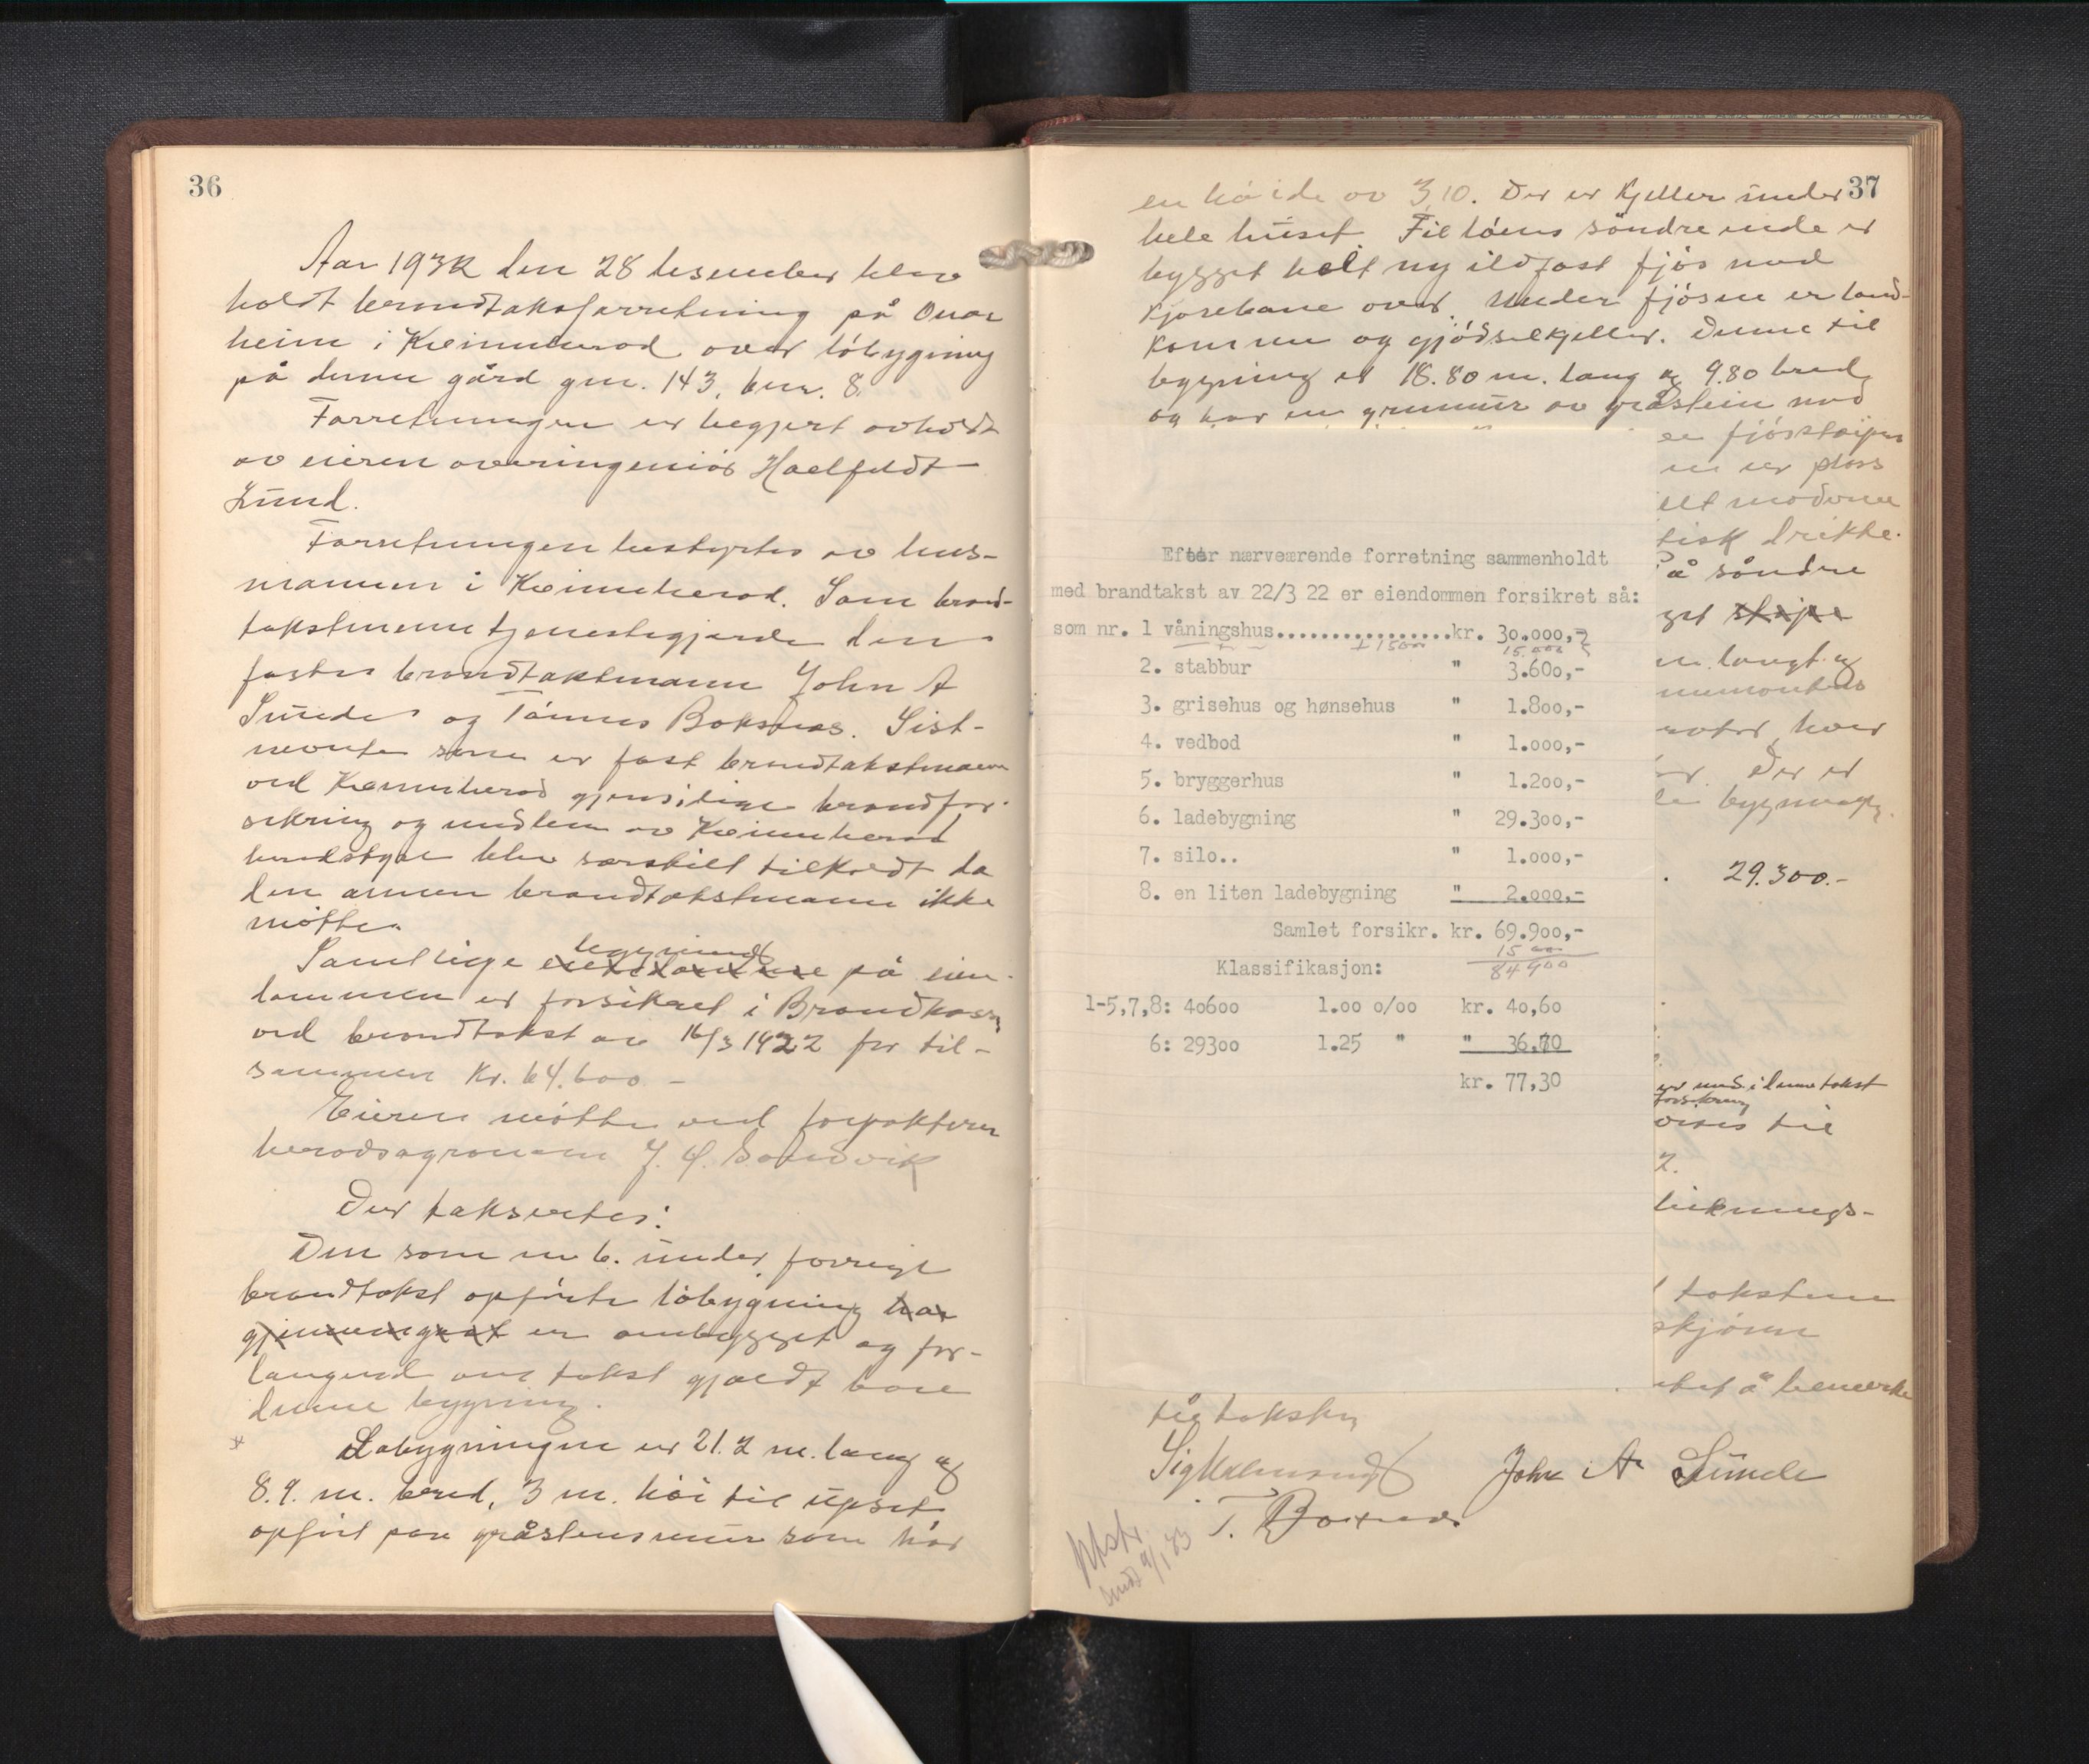 36
Aar 1932 den 28 desember blev
holdt brandtaksforretning på Onar
heim i Kvinnherad over löbygning
på denne gård gnr. 143, bnr. 8.
Forretningen er begjert avholdt
av eieren overingeniör Haelfeldt
Lund.
Forretningen bestyrtes av lens-
mannen i Kvinnherad. Som brand-
takstmenn tjenestegjorde den
faste brandtakstmann John A
Sunde og Tönnes Boksnes. Sist-
nevnte som er fast brandtakstmann
ved Kvinnherad gjensidige brandfor-
sikring og medlem av Kvinnherad
herredstyre blev særskilt tilkaldt da
den annen brandtakstmann ikke
mötte.
bygninger
Samtlige eiendommene på eien-
dommen er forsikret i Brandkassen
ved brandtakst av 16/3 1922 for til-
sammen Kr. 64.600 -
Eieren mötte ved forpakteren
herredsagronom J. Sandvik
Der taksertes:
Den som nr 6. under forrige
brandtakst opförte löbygning har
gjennemgaat er ombygget og for-
langend om takst gjaldt bare
denne bygning.
Löbygningen er 21.2 m. lang og
8.9. m. bred, 3 m. höi til upset,
opfört paa gråstensmur som har
37
en höide av 3,10. Der er kjeller under
hele huset. Til löens söndre ende er
bygget helt ny ildfast fjös med
kjörebane over. Under fjösen er land-
kommer og gjödselkjeller. Denne til
bygning er 18.80 m. lang og 9.80 bred
og har en grunnmur av gråstein med
er plass
elt moderne
tisk drikke.
å söndre
get skipe
m. langt og
motor, hver
Der er
bygning
29.300.-
Efter nærværende forretning sammenholdt
med brandtakst av 22/3 22 er eiendommen forsikret så:
som nr. 1 våningshus................kr. 30.000,-
+ 15000 15.000
2. stabbur " 3.600,-
3. grisehus og hønsehus " 1.800,-
4. vedbod " 1.000,-
5. bryggerhus " 1.200,-
6. ladebygning " 29.300,-
7. silo.. " 1.000,-
8. en liten ladebygning " 2.000,-
Samlet forsikr. kr. 69.900,-
15 00
84 900
Klassifikasjon:
1-5,7,8: 40600 1.00 o/oo kr. 40,60
6: 29300 1.25 " " 36.70
kr. 77,30
er med i denne takst
forsikring
vises til
2.
takstene
skjönn
å bemerke
John A Sunde
T. Boksnes